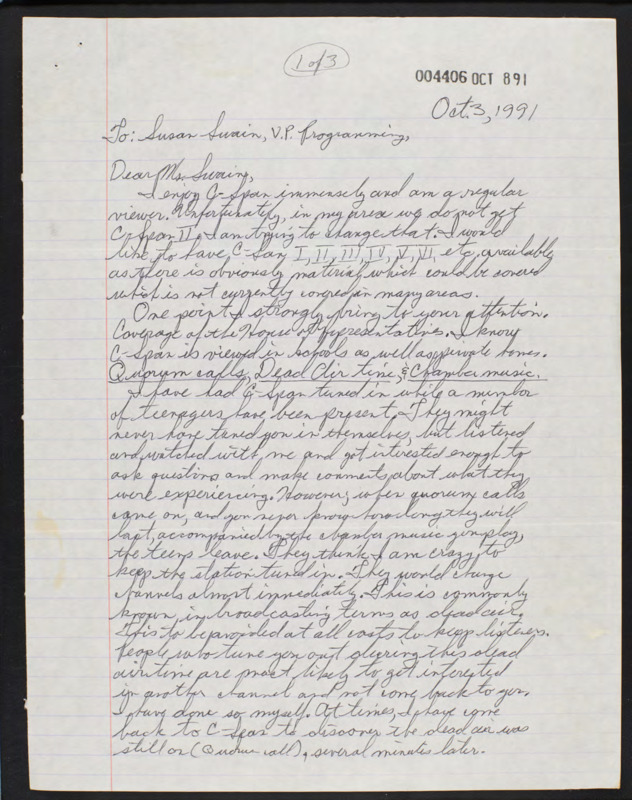 1 of 3
004406 OCT 8 91
Oct. 3, 1991
To: Susan Swain, V.P. Programming,
Dear Ms. Swain,
I enjoy C-Span immensely and am a regular
viewer. Unfortunately, in my area we do not get
C-Span II. I am trying to change that. I would
like to have C-Span I, II, III, IV, V, VI etc, available
as there is obviously material which could be covered
which is not currently covered in many areas.
One point I strongly bring to your attention.
Coverage of the House of Representatives. I know
C-Span is viewed in schools as well as private homes.
Quorum calls, Dead Air time, & Chamber music.
I have had C-Span tuned in while a number
of teenagers have been present. They might
never have tuned you in themselves, but listened
and watched with me and got interested enough to
ask questions and make comments about what they
were experiencing. However, when quorum calls
came on, and you never know how long they will
last, accompanied by the chamber music you play,
the teens leave. They think I am crazy to
keep the station tuned in. They would change
channels almost immediately. This is commonly
known in broadcasting terms as dead air.
This to be avoided at all costs to keep listeners.
People who tune you out during this dead
air time are most likely to get interested
in another channel and not come back to you.
I have done so myself. At times, I have come
back to C-Span to discover the dead air was
still on (Quorum call), several minutes later.